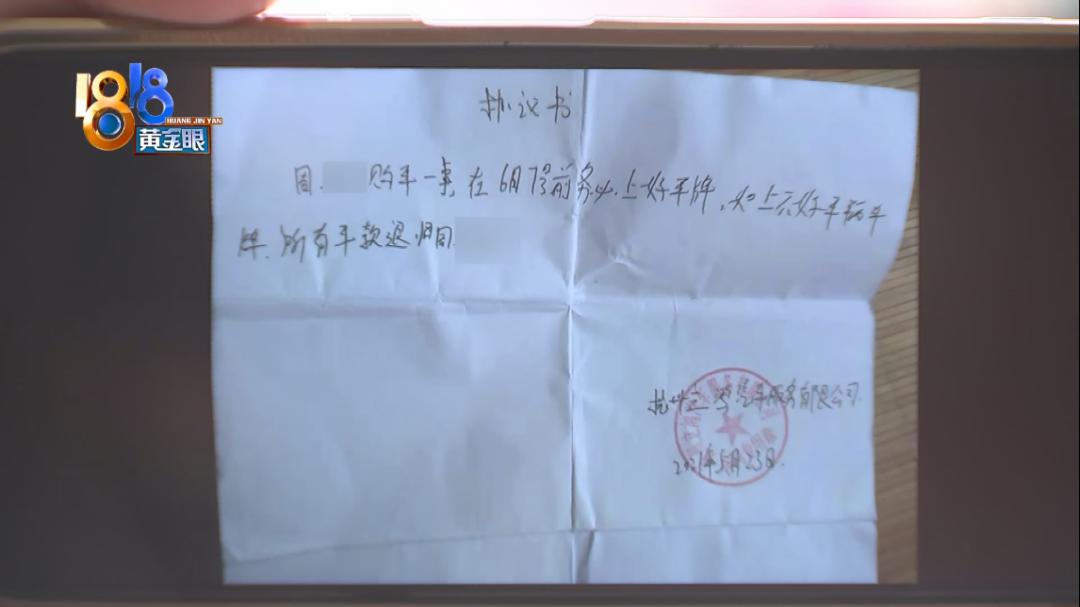 1818
HUANG JIN YAN
黄金眼
协议书
因.购车一事,在6月7号前务必上好车牌,如上不好车辆车
牌.所有车款退归回.
杭州汽车服务有限公司.
2021年5月23日.